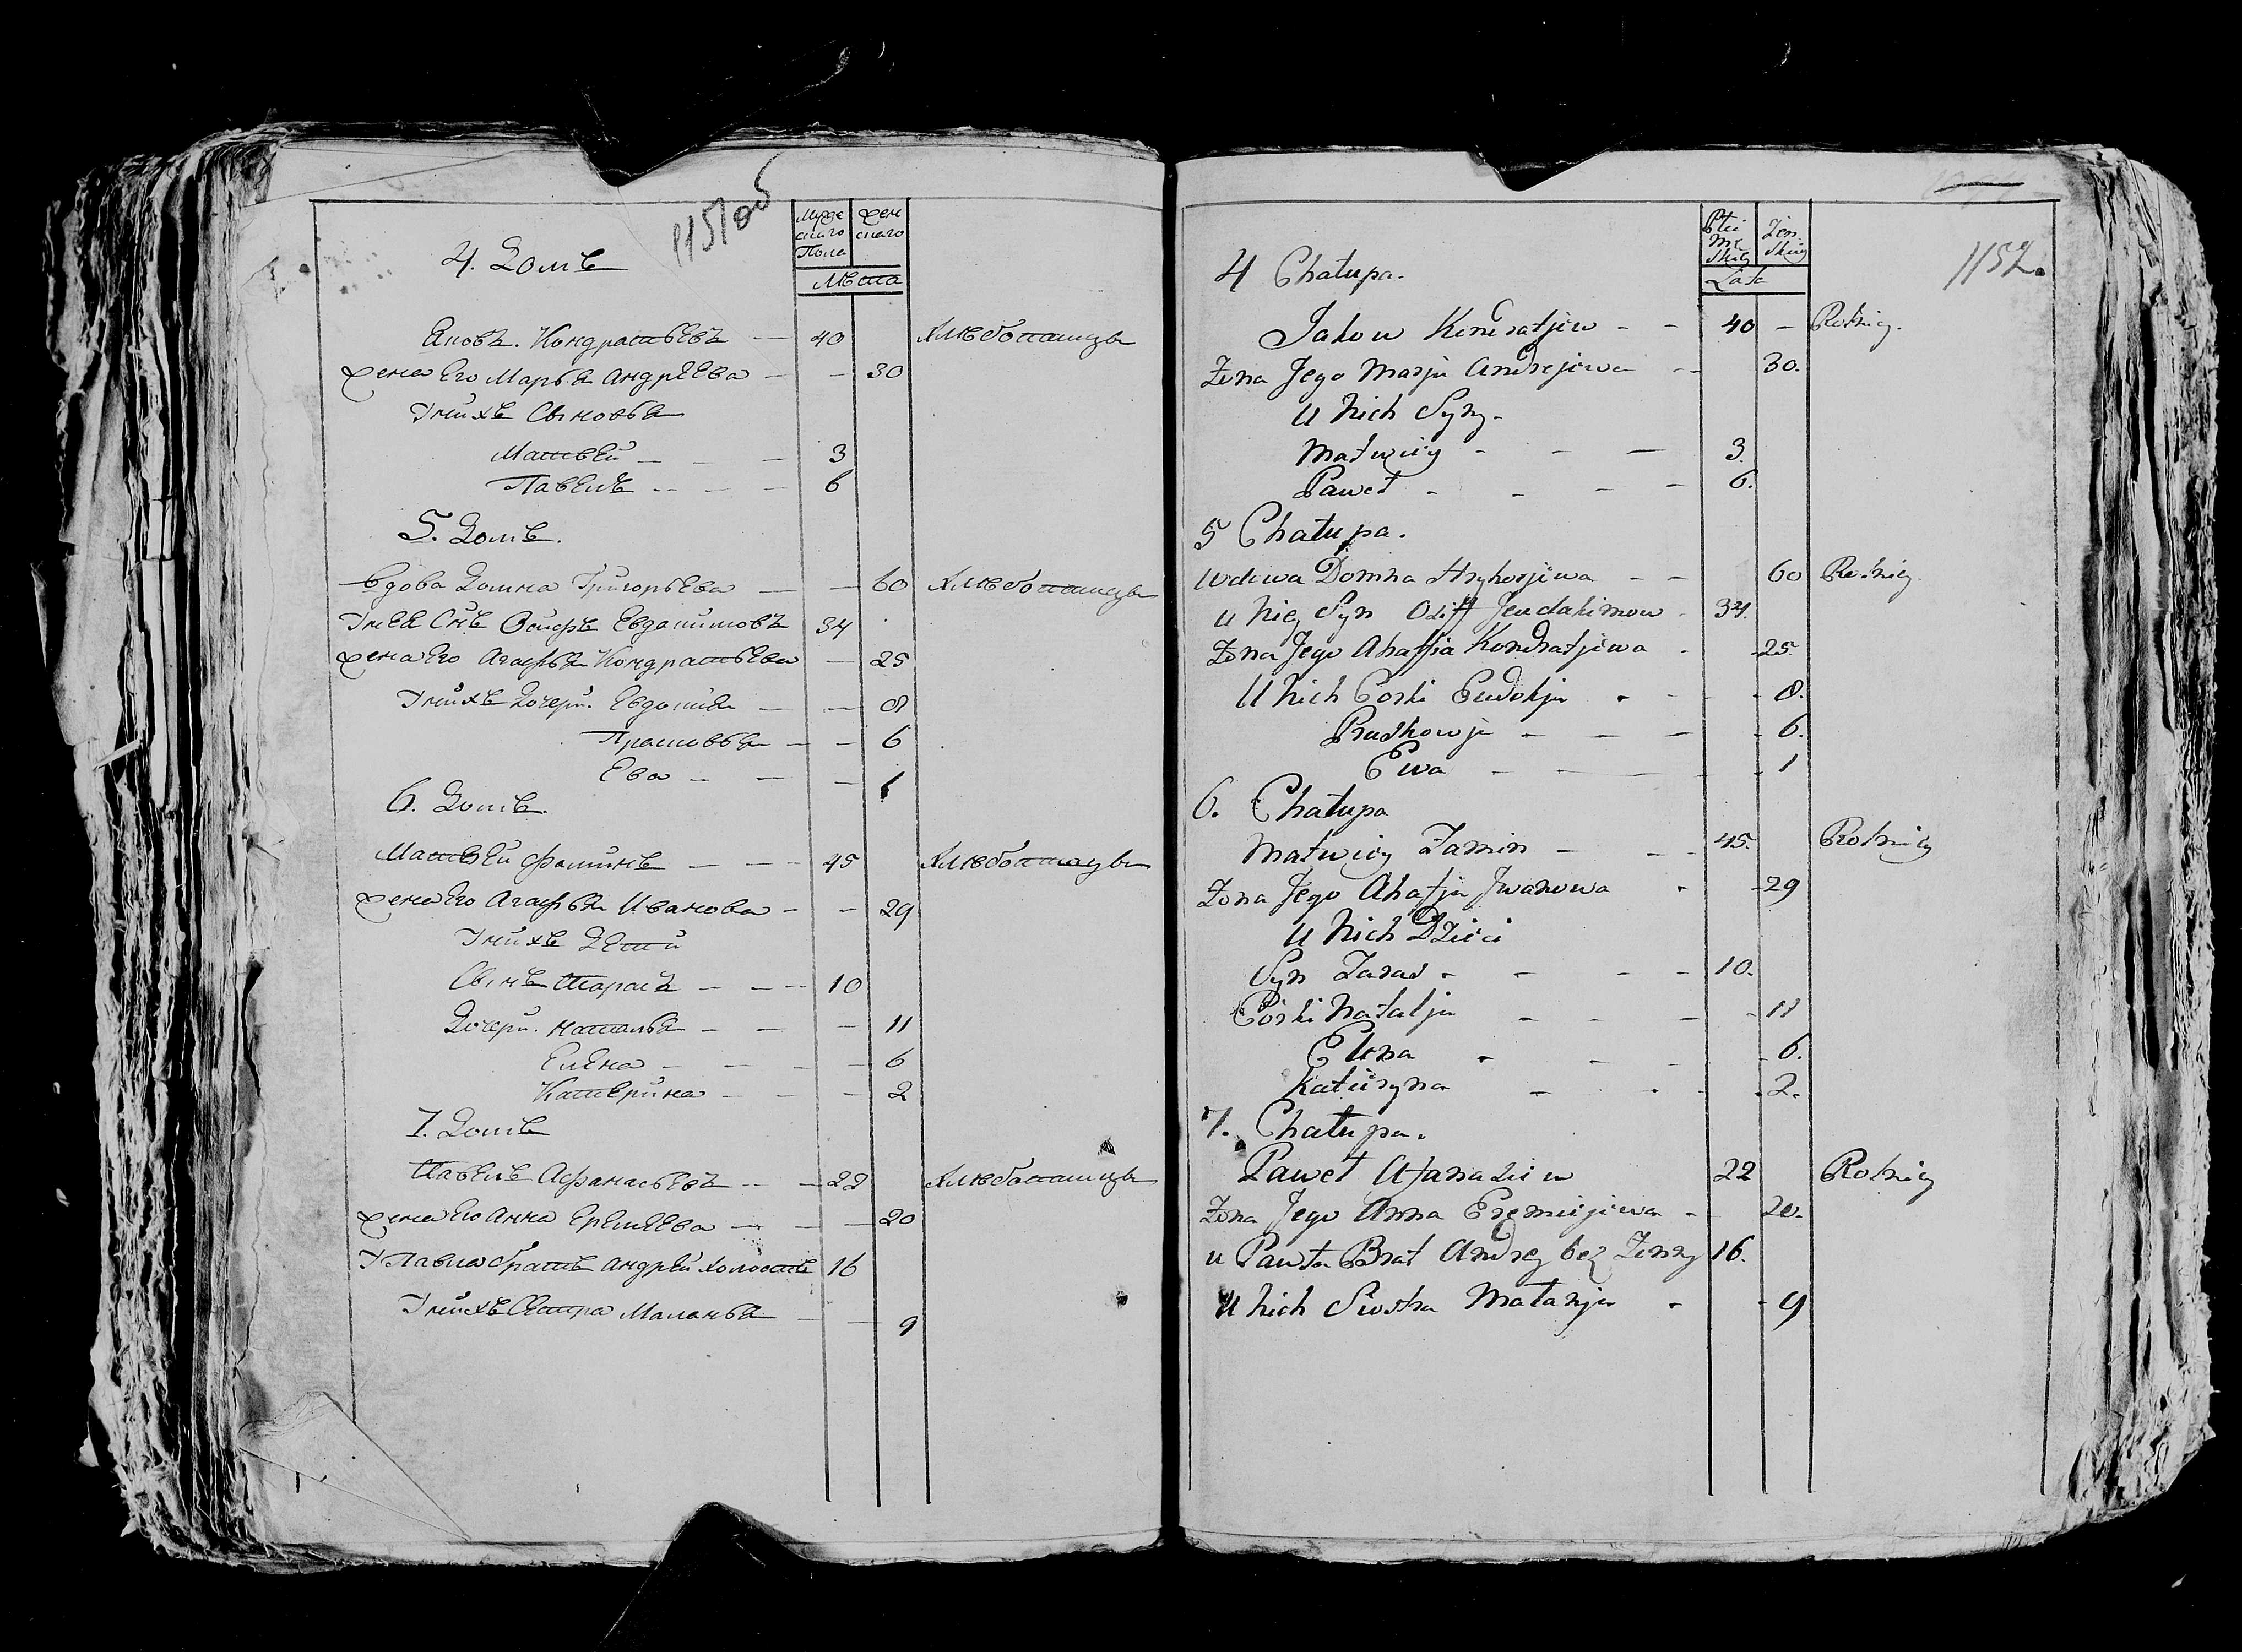 1151 об
Муже
скаго
Пола
Жен
скаго
Лѣта
4. Домъ
Яковъ Кондратьевъ — 40 Хлѣбопашцы
Жена Его Марья Андреева — — 30
У нихъ Сыновья
Матвей — — — 3
Павелъ — — — 6
5. Домъ.
Вдова Домна Григорьева — — 60 Хлѣбопашцы
У нея Снъ Осифъ Евдокимовъ 34
Жена Его Агафья Кондратьева — 25
У нихъ Дочери. Евдокия — — 8
Прасковья — — 6
Ева — — — 1
6. Домъ.
Матвей Фоминъ — — — 45 Хлѣбопашцы
Жена Его Агафья Иванова — — 29
У нихъ Дети
Сынъ Тарасъ — — — 10
Дочери. Наталья — — — 11
Елена — — — — 6
Катерина — — — 2
7. Домъ
Павелъ Афанасьевъ — — 22 Хлѣбопашцы
Жена Его Анна Еремеева — — — 20
У Павла братъ Андрей холостъ 16
У нихъ Сестра Маланья — — 9
1152.
Płci
Mę
skiey
Żen
skiey
Lata
4 Chałupa.
Jakow Kondratjew - - 40 - Rolnicy.
Żona Jego Marja Andrejewa - - 30.
U Nich Syny -
Matwiey - - — 3.
Paweł - - - - 6.
5 Chałupa.
Wdowa Domna Hryhorjewa - - 60 Rolnicy
u Niey Syn Osiff Jeudakimow - 34.
Żona Jego Ahaffia Kondratjewa - 25.
U Nich Corki Eudokja - - - 8.
Praskowja - - - - 6.
Ewa - - - - 1
6. Chałupa
Matwiey Famin - - - 45. Rolnicy
Żona Jego Ahafja Jwanowa - - 29
U Nich Dzieci
Syn Taras - - - - 10.
Córki Natalja - - - - 11
Elena - - - - 6.
Katieryna - - - 2.
7. Chałupa.
Paweł Afanaziew 22 Rolnicy
Żona Jego Anna Eremiejewa - 20.
u Pawła Brat Andrey bez Żenny 16.
U Nich Siostra Małanja - - 9